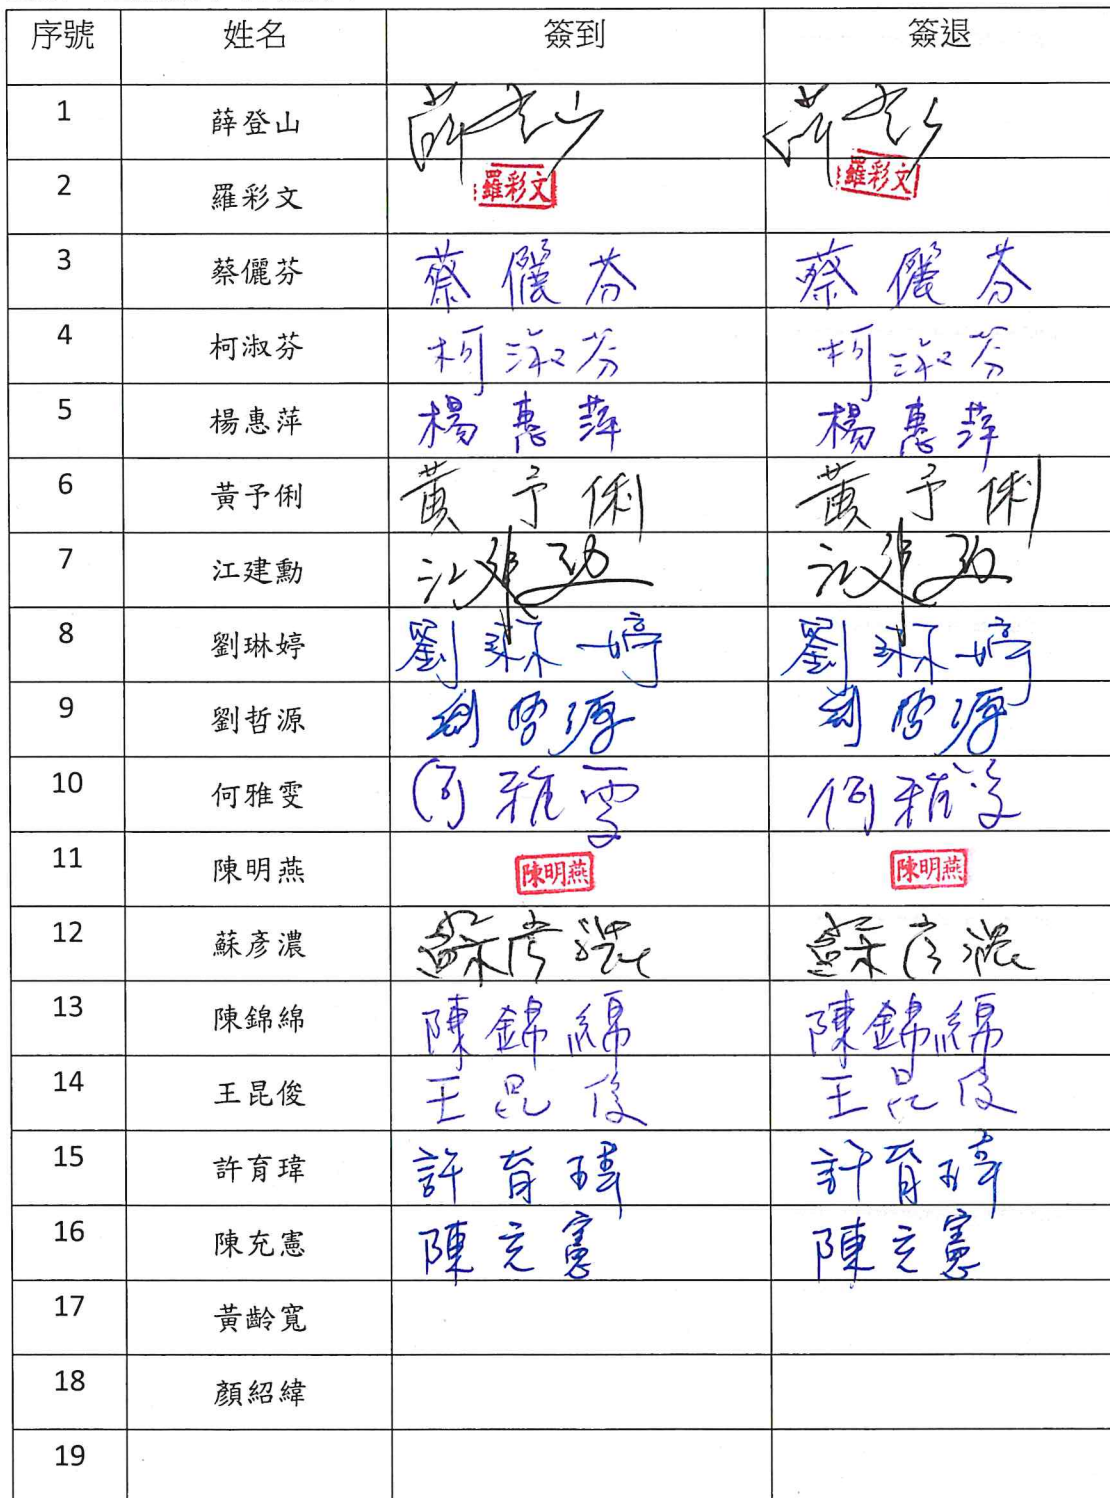 序號 姓名 簽到 簽退
1 薛登山 薛登山 薛登山
2 羅彩文 羅彩文 羅彩文
3 蔡儷芬 蔡儷芬 蔡儷芬
4 柯淑芬 柯淑芬 柯淑芬
5 楊惠萍 楊惠萍 楊惠萍
6 黃予俐 黃予俐 黃予俐
7 江建勳 江建勳 江建勳
8 劉琳婷 劉琳婷 劉琳婷
9 劉哲源 劉哲源 劉哲源
10 何雅雯 何雅雯 何雅雯
11 陳明燕 陳明燕 陳明燕
12 蘇彥濃 蘇彥濃 蘇彥濃
13 陳錦綿 陳錦綿 陳錦綿
14 王昆俊 王昆俊 王昆俊
15 許育瑋 許育瑋 許育瑋
16 陳充憲 陳充憲 陳充憲
17 黃齡寬
18 顏紹緯
19